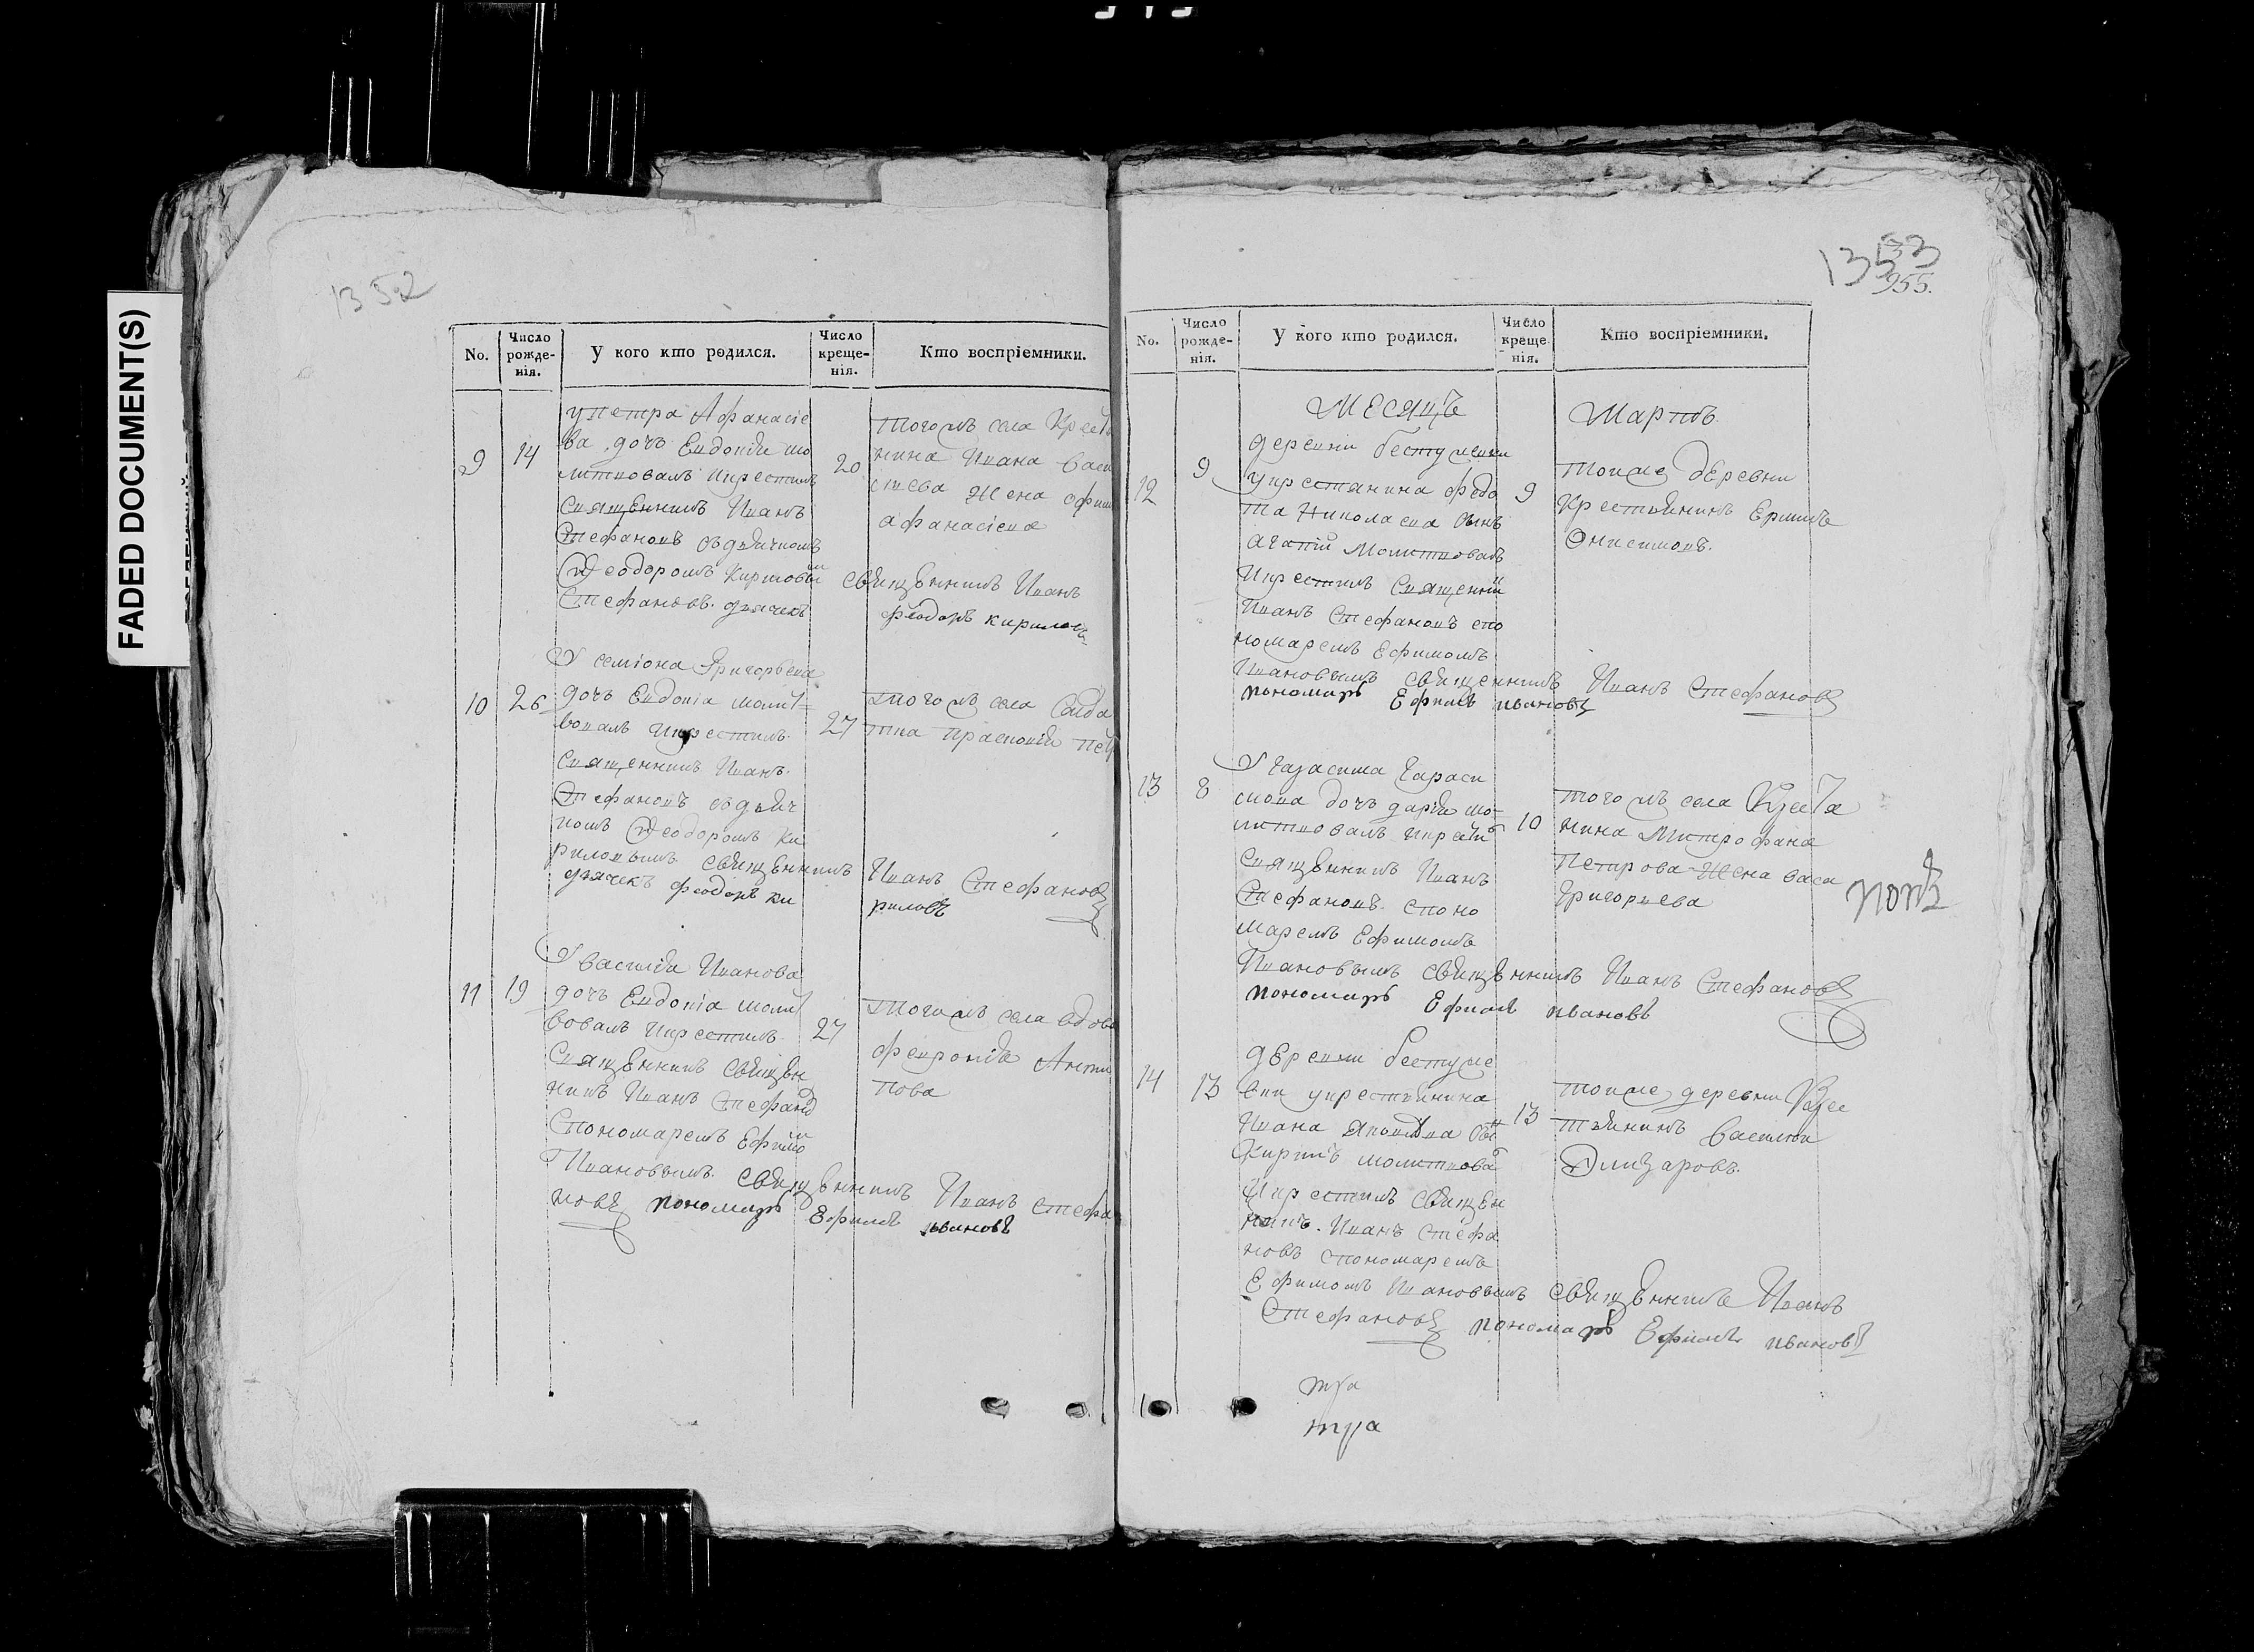 FADED DOCUMENT(S)
1352
No.
Число рожденія.
У кого кто родился.
Число крещенія.
Кто воспріемники.
9
14
у петра Афанасіе
ва дочь Евдокія мо
литвовалъ икрестилъ
Священникъ Иванъ
Стефановъ сдьячкомъ
Феодоромъ Кириловы
Стефановъ. дьячекъ
20
тогожъ села Крест
нина Ивана Васи
льева жена Офим
афанасіева
Священникъ Иванъ
феодоръ кириловъ
10
26
У семіона Григорьева
дочь Евдокіа молит
вовалъ икрестилъ
Священникъ Иванъ
Стефановъ сдьяч
комъ Феодоромъ Ки
риловымъ священникъ Иванъ Стефановъ
дьячекъ феодоръ ки риловъ
27
тогожъ села Солда
тка Прасковія Пет
11
19
У василія Иванова
дочь Евдокіа молит
вовалъ икрестилъ
Священникъ священ
никъ Иванъ Стефано
Спономаремъ Ефимо
Ивановымъ священникъ Иванъ Стефа
новъ пономарь Ефимъ ивановъ
27
тогожъ села вдова
февронія Анти
пова
1353
955.
No.
Число рожденія.
У кого кто родился.
Число крещенія.
Кто воспріемники.
Месяцъ
Мартъ
12
9
деревни бестужевки
укрестянина федо
та Николаева сынъ
агапій Молитвовалъ
Икрестилъ Священни
Иванъ Стефановъ спо
номаремъ Ефимомъ
Ивановымъ священникъ Иванъ Стефановъ
пономарь Ефимъ ивановъ
9
тойже деревни
Крестьянинъ Ермилъ
Онисимовъ.
13
8
У гарасима Гараси
мова дочь дарія мо
литвовалъ икрести
Священникъ Иванъ
Стефановъ споно
маремъ Ефимомъ
Ивановымъ священникъ Иванъ Стефановъ
пономарь Ефимъ ивановъ
10
тогожъ села Крестья
нина Митрофана
Петрова Жена васа
Григорьева
14
13
деревни бестуже
вки укрестьянина
Ивана Яковлева сы
Кирилъ молитвова
Икрестилъ священ
никъ. Иванъ Стефа
новъ спономаремъ
Ефимомъ Ивановымъ священникъ Иванъ
Стефановъ пономарь Ефимъ ивановъ
13
тойже деревни Крес
тьянинъ Василей
тра
тра